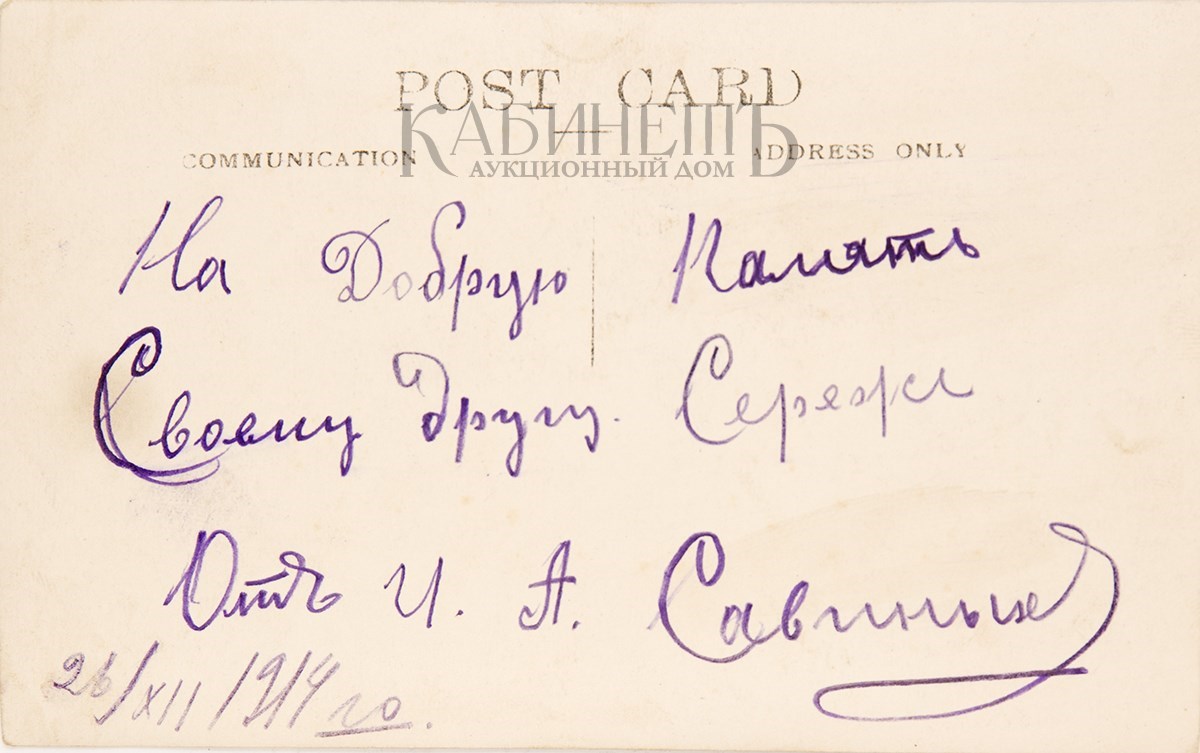 POST CARD
КАБИНЕТЪ
АУКЦИОННЫЙ ДОМ
COMMUNICATION
ADDRESS ONLY
На Доброую Память
Своему Другу. Сережи
Отъ И. А. Савиных
26/XII/1914 го.